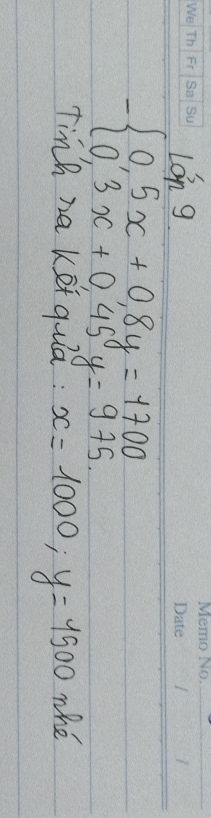 Memo No.
Date / /
We Th Fr Sa Su
Lớp 9.
- { 0,5x + 0,8y = 1700
{ 0,3x + 0,45y = 975.
Tính ra kết quả: x = 1000; y = 1500 nhé